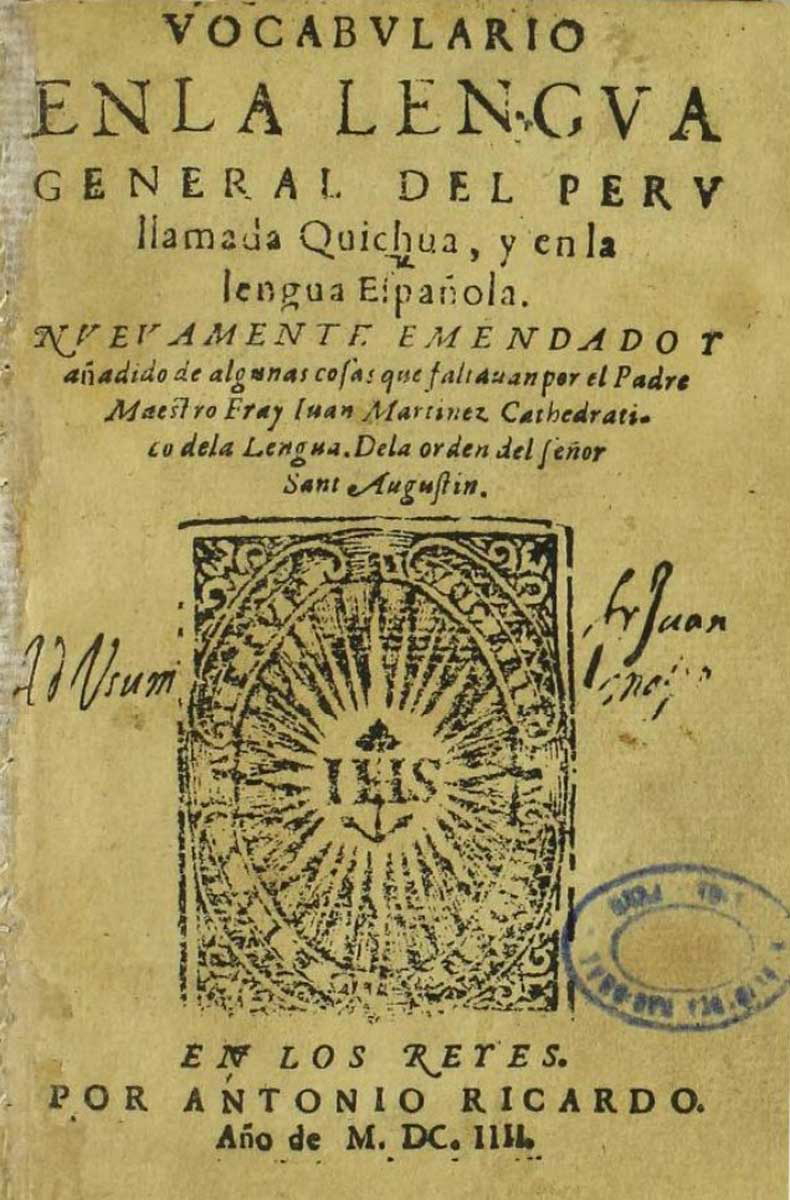 VOCABVLARIO
ENLA LENGVA
GENERAL DEL PERV
llamada Quichua, y en la
lengua Eſpañola.
NVEVAMENTE EMENDADO Y
añadido de algunas coſas que faltauan por el Padre
Maeſtro Fray Iuan Martinez Cathedrati-
co dela Lengua. Dela orden del ſeñor
Sant Auguſtin.
Ad Usum
fr Juan
IHS
EN LOS REYES.
POR ANTONIO RICARDO.
Año de M. DC. IIII.